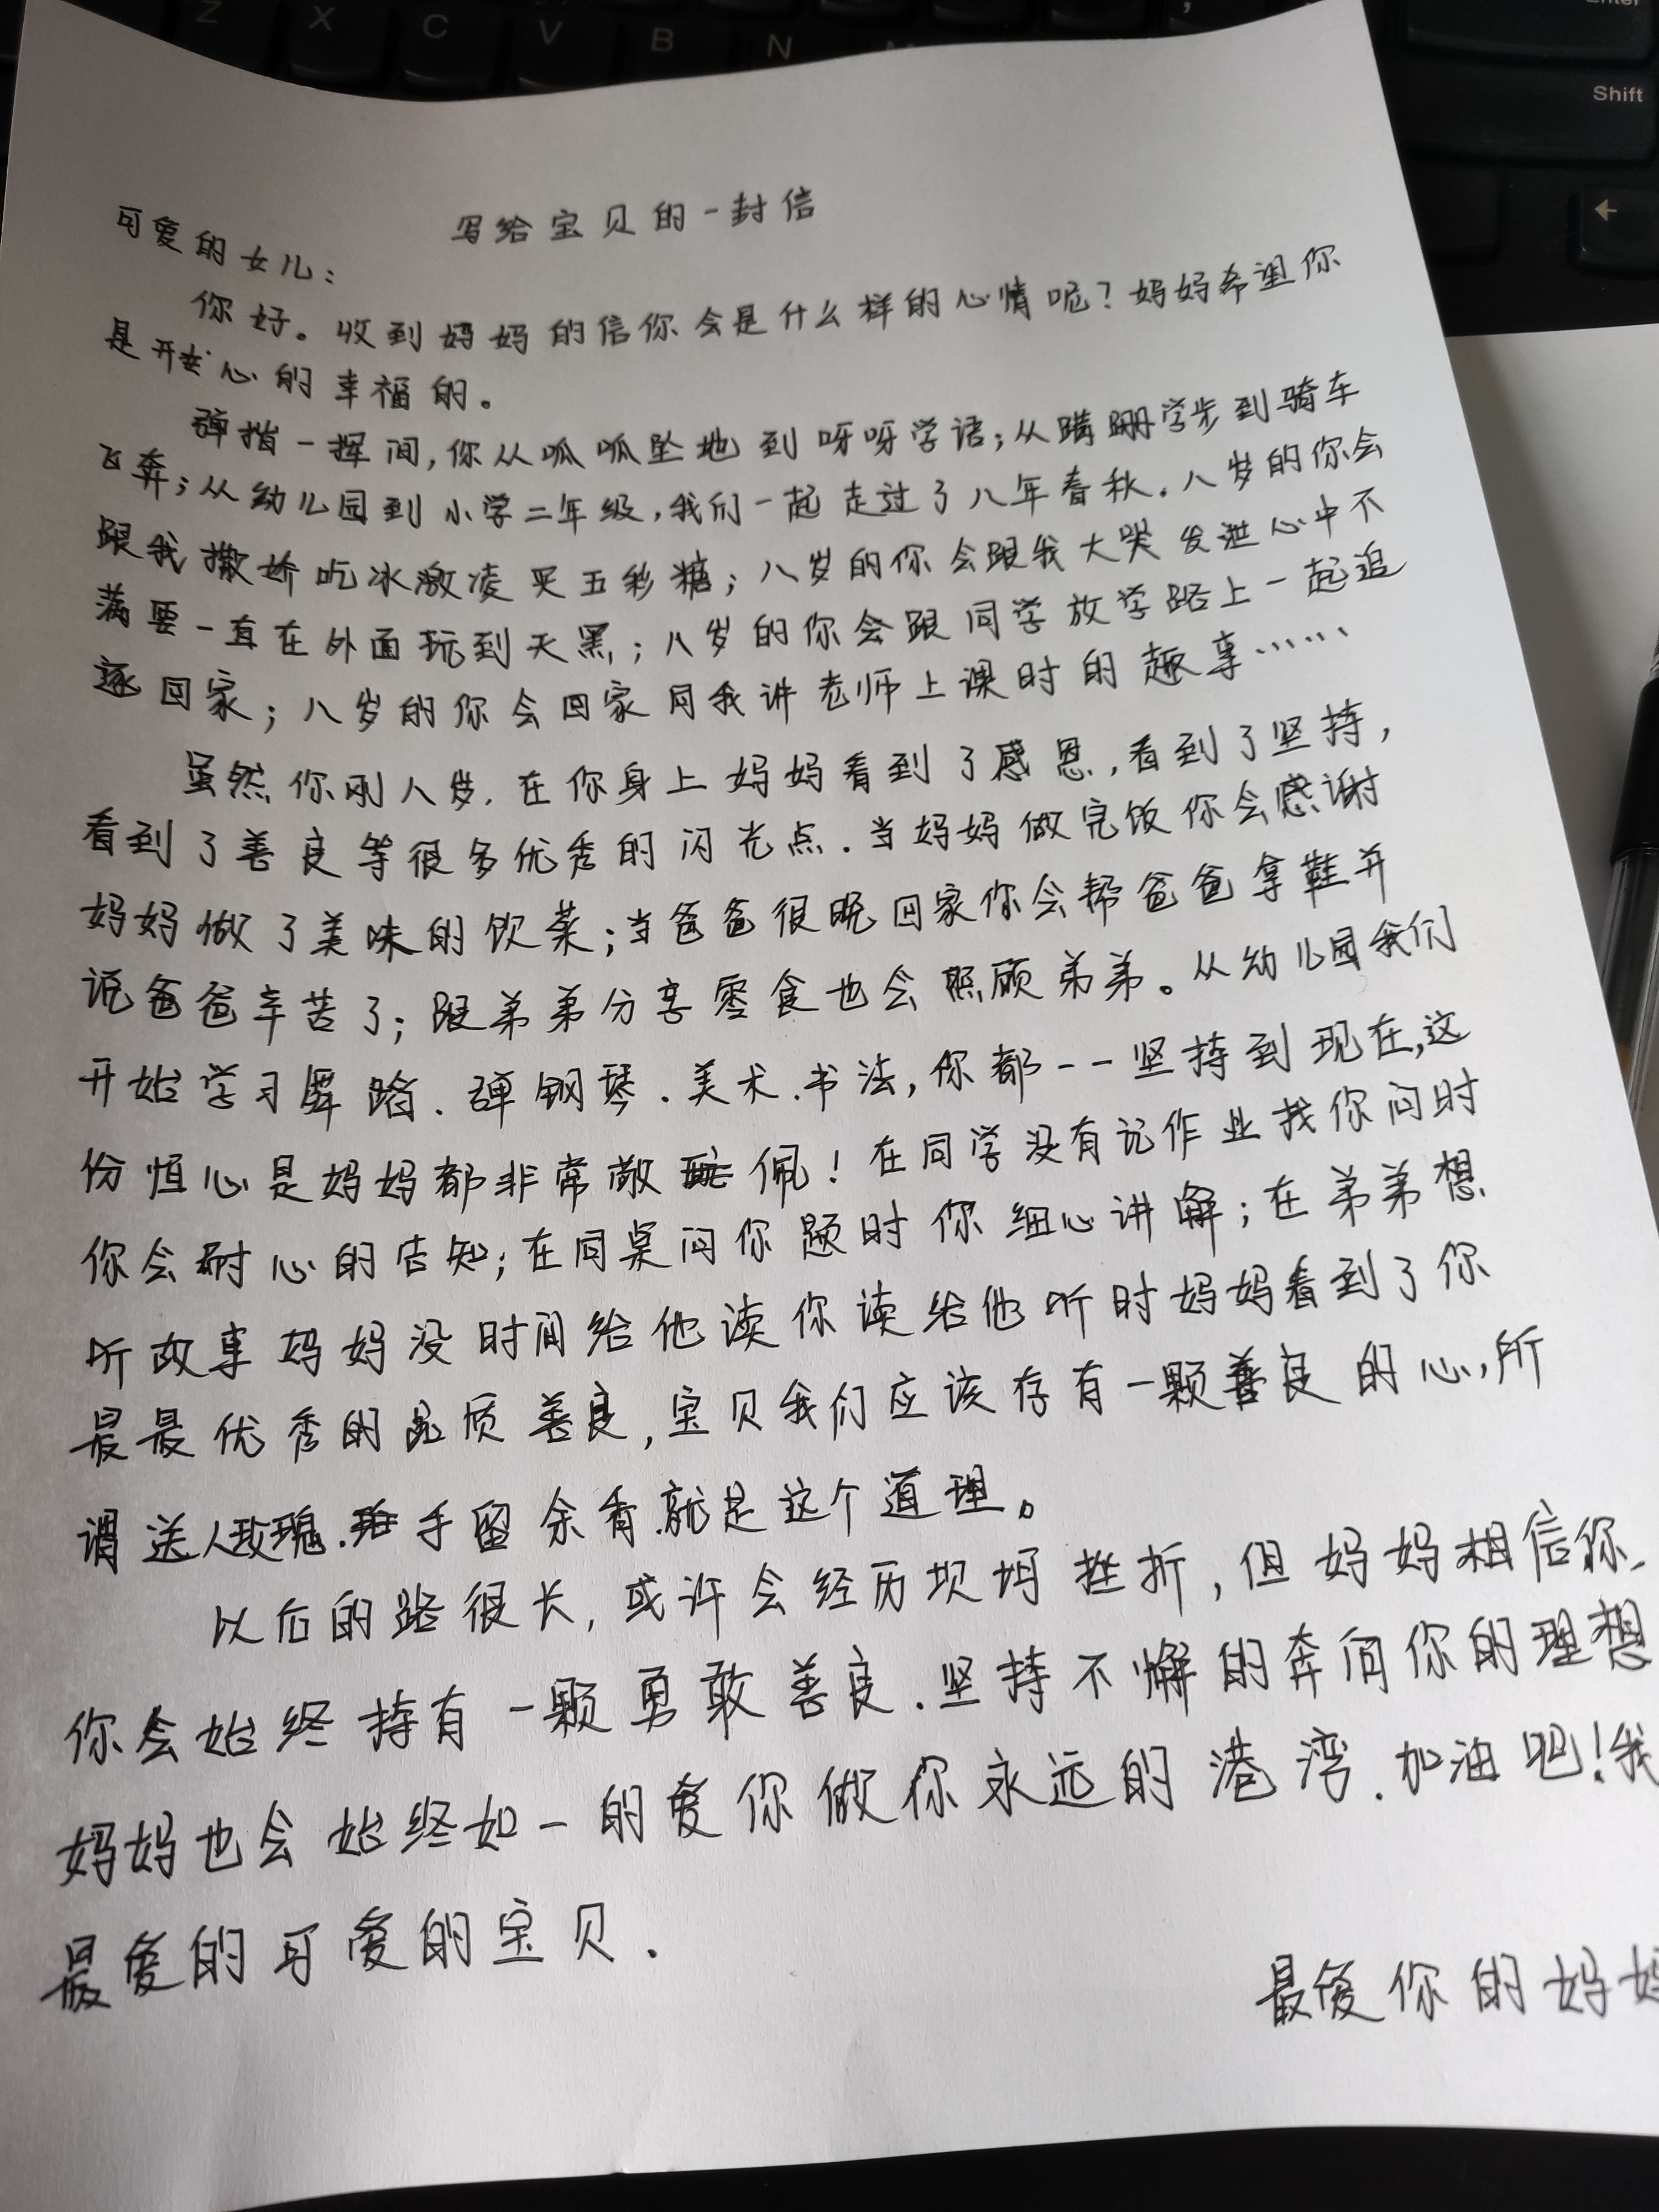 Z X C V B N
Enter
Shift
←
写给宝贝的一封信
可爱的女儿：
你好。收到妈妈的信你会是什么样的心情呢？妈妈希望你
是开心的幸福的。
弹指一挥间，你从呱呱坠地到呀呀学语；从蹒跚学步到骑车
飞奔；从幼儿园到小学二年级，我们一起走过了八年春秋．八岁的你会
跟我撒娇吃冰激凌买五彩糖；八岁的你会跟我大哭发泄心中不
满要一直在外面玩到天黑；八岁的你会跟同学放学路上一起追
逐回家；八岁的你会回家同我讲老师上课时的趣事……
虽然你刚八岁．在你身上妈妈看到了感恩，看到了坚持，
看到了善良等很多优秀的闪光点．当妈妈做完饭你会感谢
妈妈做了美味的饮菜；当爸爸很晚回家你会帮爸爸拿鞋并
说爸爸辛苦了；跟弟弟分享零食也会照顾弟弟。从幼儿园我们
开始学习舞蹈．弹钢琴．美术．书法，你都一一坚持到现在，这
份恒心是妈妈都非常敬佩！在同学没有记作业找你问时
你会耐心的告知；在同桌问你题时你细心讲解；在弟弟想
听故事妈妈没时间给他读你读给他听时妈妈看到了你
最最优秀的品质善良，宝贝我们应该存有一颗善良的心，所
谓送人玫瑰．手留余香．就是这个道理。
以后的路很长，或许会经历坝坷挫折，但妈妈相信你、
你会始终持有一颗勇敢善良．坚持不懈的奔向你的理想
妈妈也会始终如一的爱你做你永远的港湾．加油吧！我
最爱的可爱的宝贝．
最爱你的妈妈